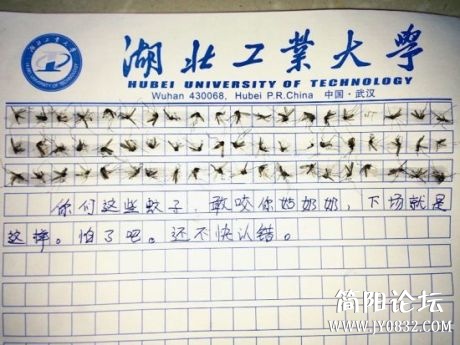 湖北工業大學
HUBEI UNIVERSITY OF TECHNOLOGY
Wuhan 430068, Hubei P.R.China 中国·武汉
你们这些蚊子，敢咬你姑奶奶，下场就是
这样。怕了吧。还不快认错。
简阳论坛
www.JY0832.com